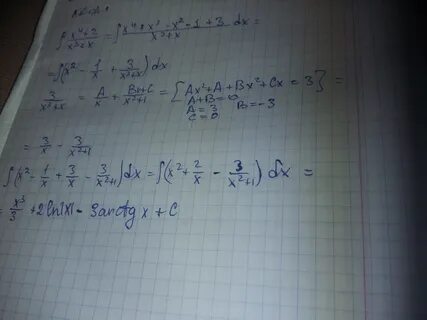 ∫ (x⁴+3)/(x²+x) dx = ∫ (x⁴+x³-x²-1+3)/(x³+x) dx =
= ∫(x² - 1/x + 3/(x³+x)) dx
3/(x³+x) = A/x + (Bx+C)/(x²+1) = [Ax²+A+Bx²+Cx = 3] =
A+B=0
A=3 B=-3
C=0
= 3/x - 3/(x²+1)
∫(x² - 1/x + 3/x - 3/(x²+1)) dx = ∫(x² + 2/x - 3/(x²+1)) dx =
= x³/3 + 2ln|x| - 3arctg x + C